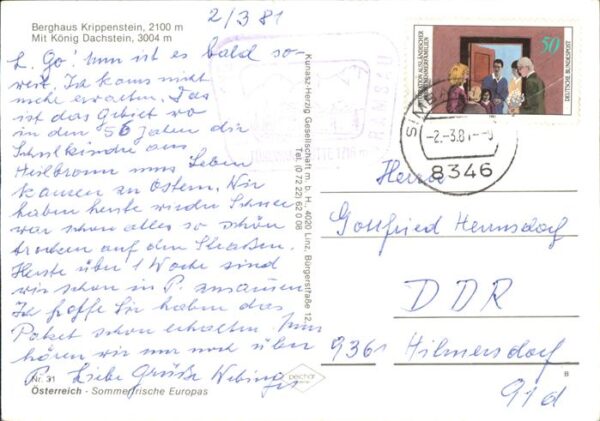 Berghaus Krippenstein, 2100 m
Mit König Dachstein, 3004 m
2/3 81
L. Go! Nun ist es bald so-
weit. Ich kanns nicht
mehr erwarten. Das
ist das Gebiet wo
in den 50 Jahren die
Schulkinder aus
Heilbronn ums Leben
kamen zu Ostern. Wir
haben heute wieder Schnee
war schon alles so schön
trocken auf den Straßen.
Heute über 1 Woche sind
wir schon in P. zusammen
Ich hoffe Sie haben das
Paket schon erhalten. Nun
hören wir nur noch über
P. Liebe Grüße
Nr. 31
Österreich - Sommerfrische Europas
Kunasz-Herzig Gesellschaft m. b. H. 4020 Linz, Bürgerstraße 12,
Tel. (0 72 22) 62 0 08
RAMSAU
INTEGRATION AUSLÄNDISCHER
ARBEITNEHMERFAMILIEN
50
DEUTSCHE BUNDESPOST
SIMBACH
-2.-3.8
8346
Herrn
Gottfried Hermsdorf
DDR
9361 Hilmersdorf
91d
B